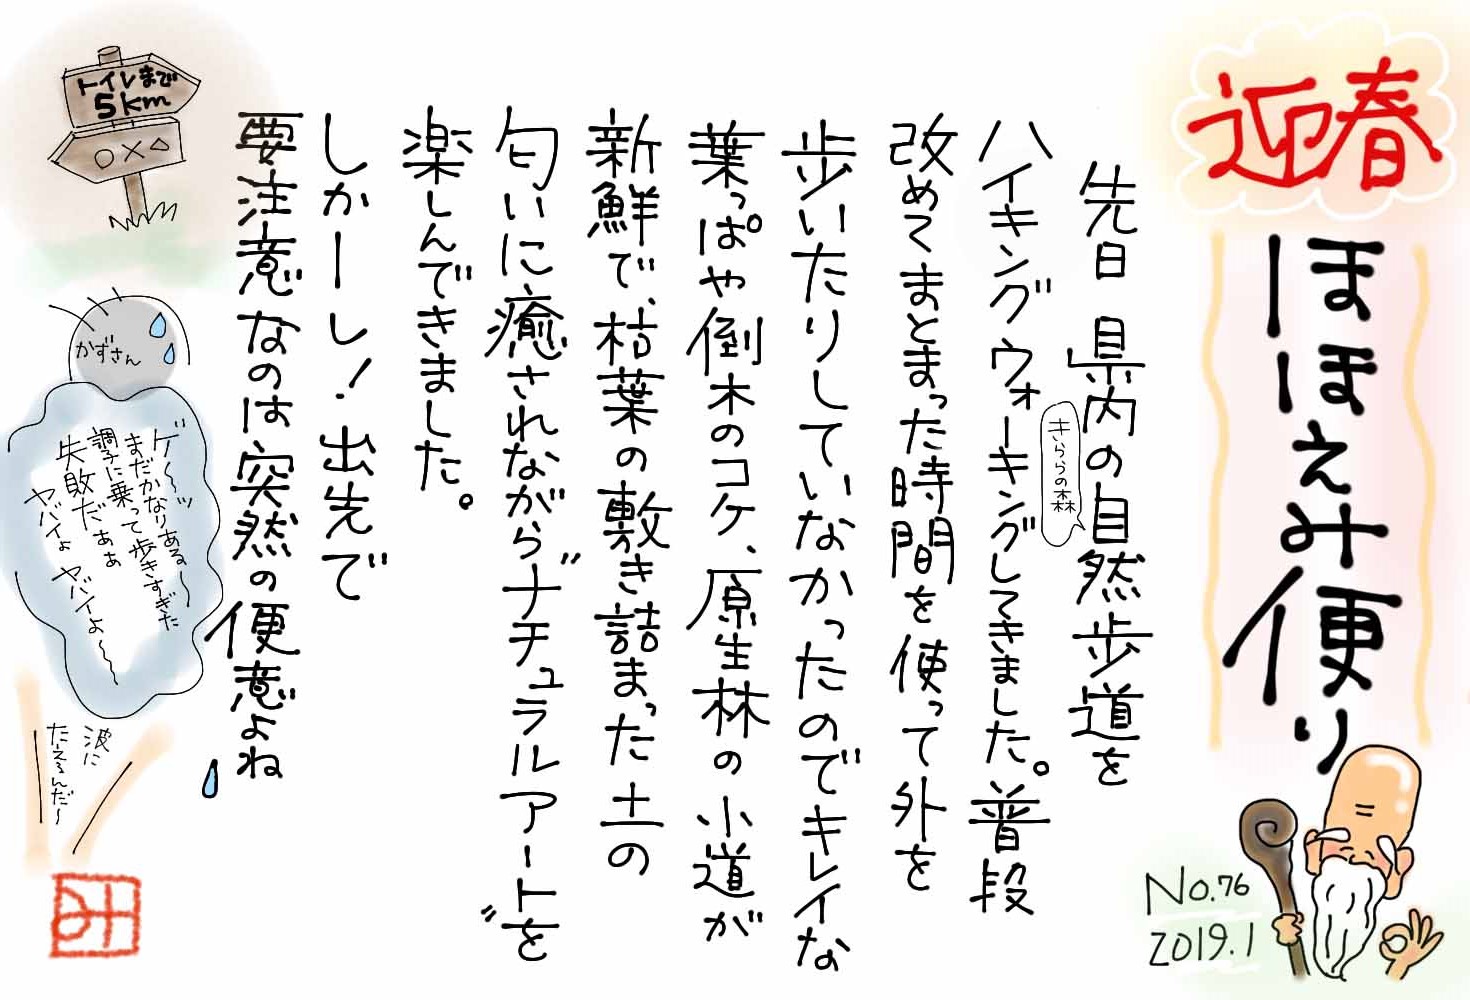 迎春
ほほえみ便り
No.76
2019.1
先日 県内の自然歩道を
きららの森
ハイキングウォーキングしてきました。普段
改めてまとまった時間を使って外を
歩いたりしていなかったのでキレイな
葉っぱや倒木のコケ、原生林の小道が
新鮮で、枯葉の敷き詰まった土の
匂いに癒されながら〝ナチュラルアート〟を
楽しんできました。
しかーーし!出先で
要注意なのは突然の便意よね
トイレまで
5km
○×△
かずさん
ゲ〜〜ッ
まだかなりある〜
調子に乗って歩きすぎた
失敗だぁぁ
ヤバイょ ヤバイょ〜〜
波に
たえるんだ〜
み